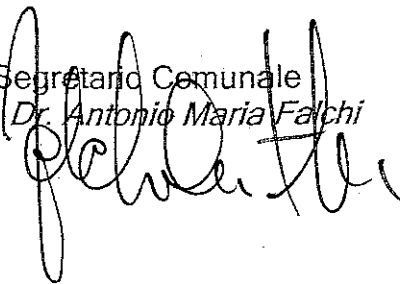 Segretario Comunale
Dr. Antonio Maria Falchi